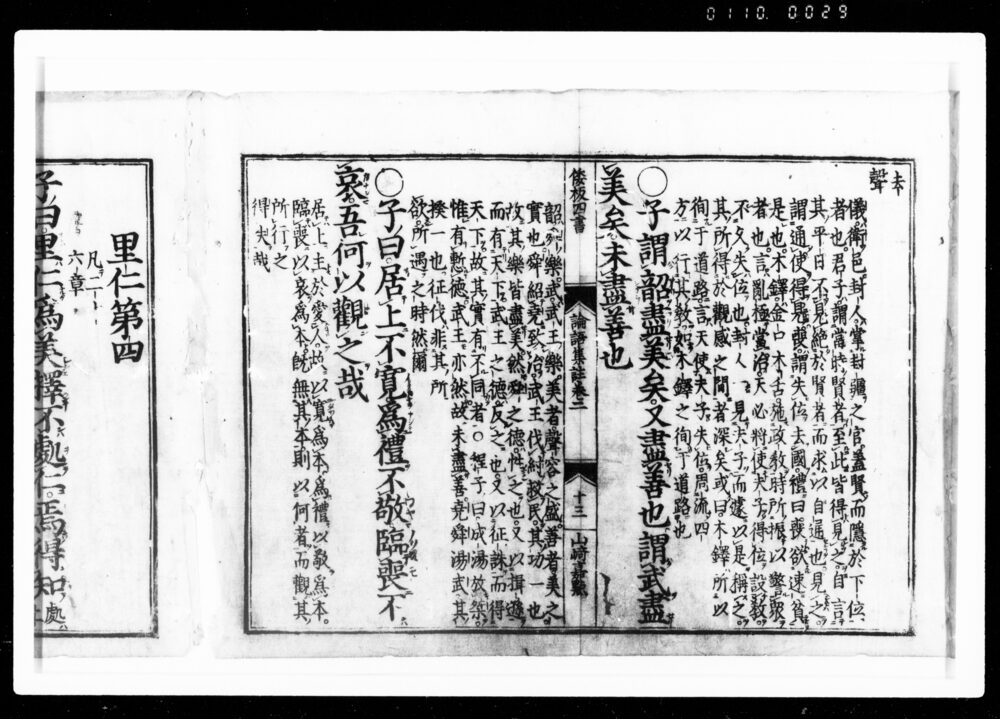 0110. 0029
去聲
儀衛邑封人掌封疆之官蓋賢而隱於下位
者也君子謂當時賢者至此皆得見之自言
其平日不見絶於賢者而求以自通也見之
謂通使得見喪謂失位去國禮曰喪欲速貧
是也木鐸金口木舌施政教時所振以警衆
者也言亂極當治天必將使夫子得位設教
不久失位也封人一見夫子而遽以是稱之
其所得於觀感之間者深矣或曰木鐸所以
徇于道路言天使夫子失位周流四
方以行其教如木鐸之徇于道路也
○子謂韶盡美矣又盡善也謂武盡
美矣未盡善也
倭板四書
論語集註卷二
十三
山崎嘉點
韶舜樂武武王樂美者聲容之盛善者美之
實也舜紹堯致治武王伐紂救民其功一也
故其樂皆盡美然舜之德性之也又以揖遜
而有天下武王之德反之也又以征誅而得
天下故其實有不同者○程子曰成湯放桀
惟有慙德武王亦然故未盡善堯舜湯武其
揆一也征伐非其所
欲所遇之時然爾
○子曰居上不寬爲禮不敬臨喪不
哀吾何以觀之哉
居上主於愛人故以寬爲本爲禮以敬爲本
臨喪以哀爲本既無其本則以何者而觀其
所行之
得失哉
里仁第四
凡二十
六章
子曰里仁爲美擇不處仁焉得知處
上